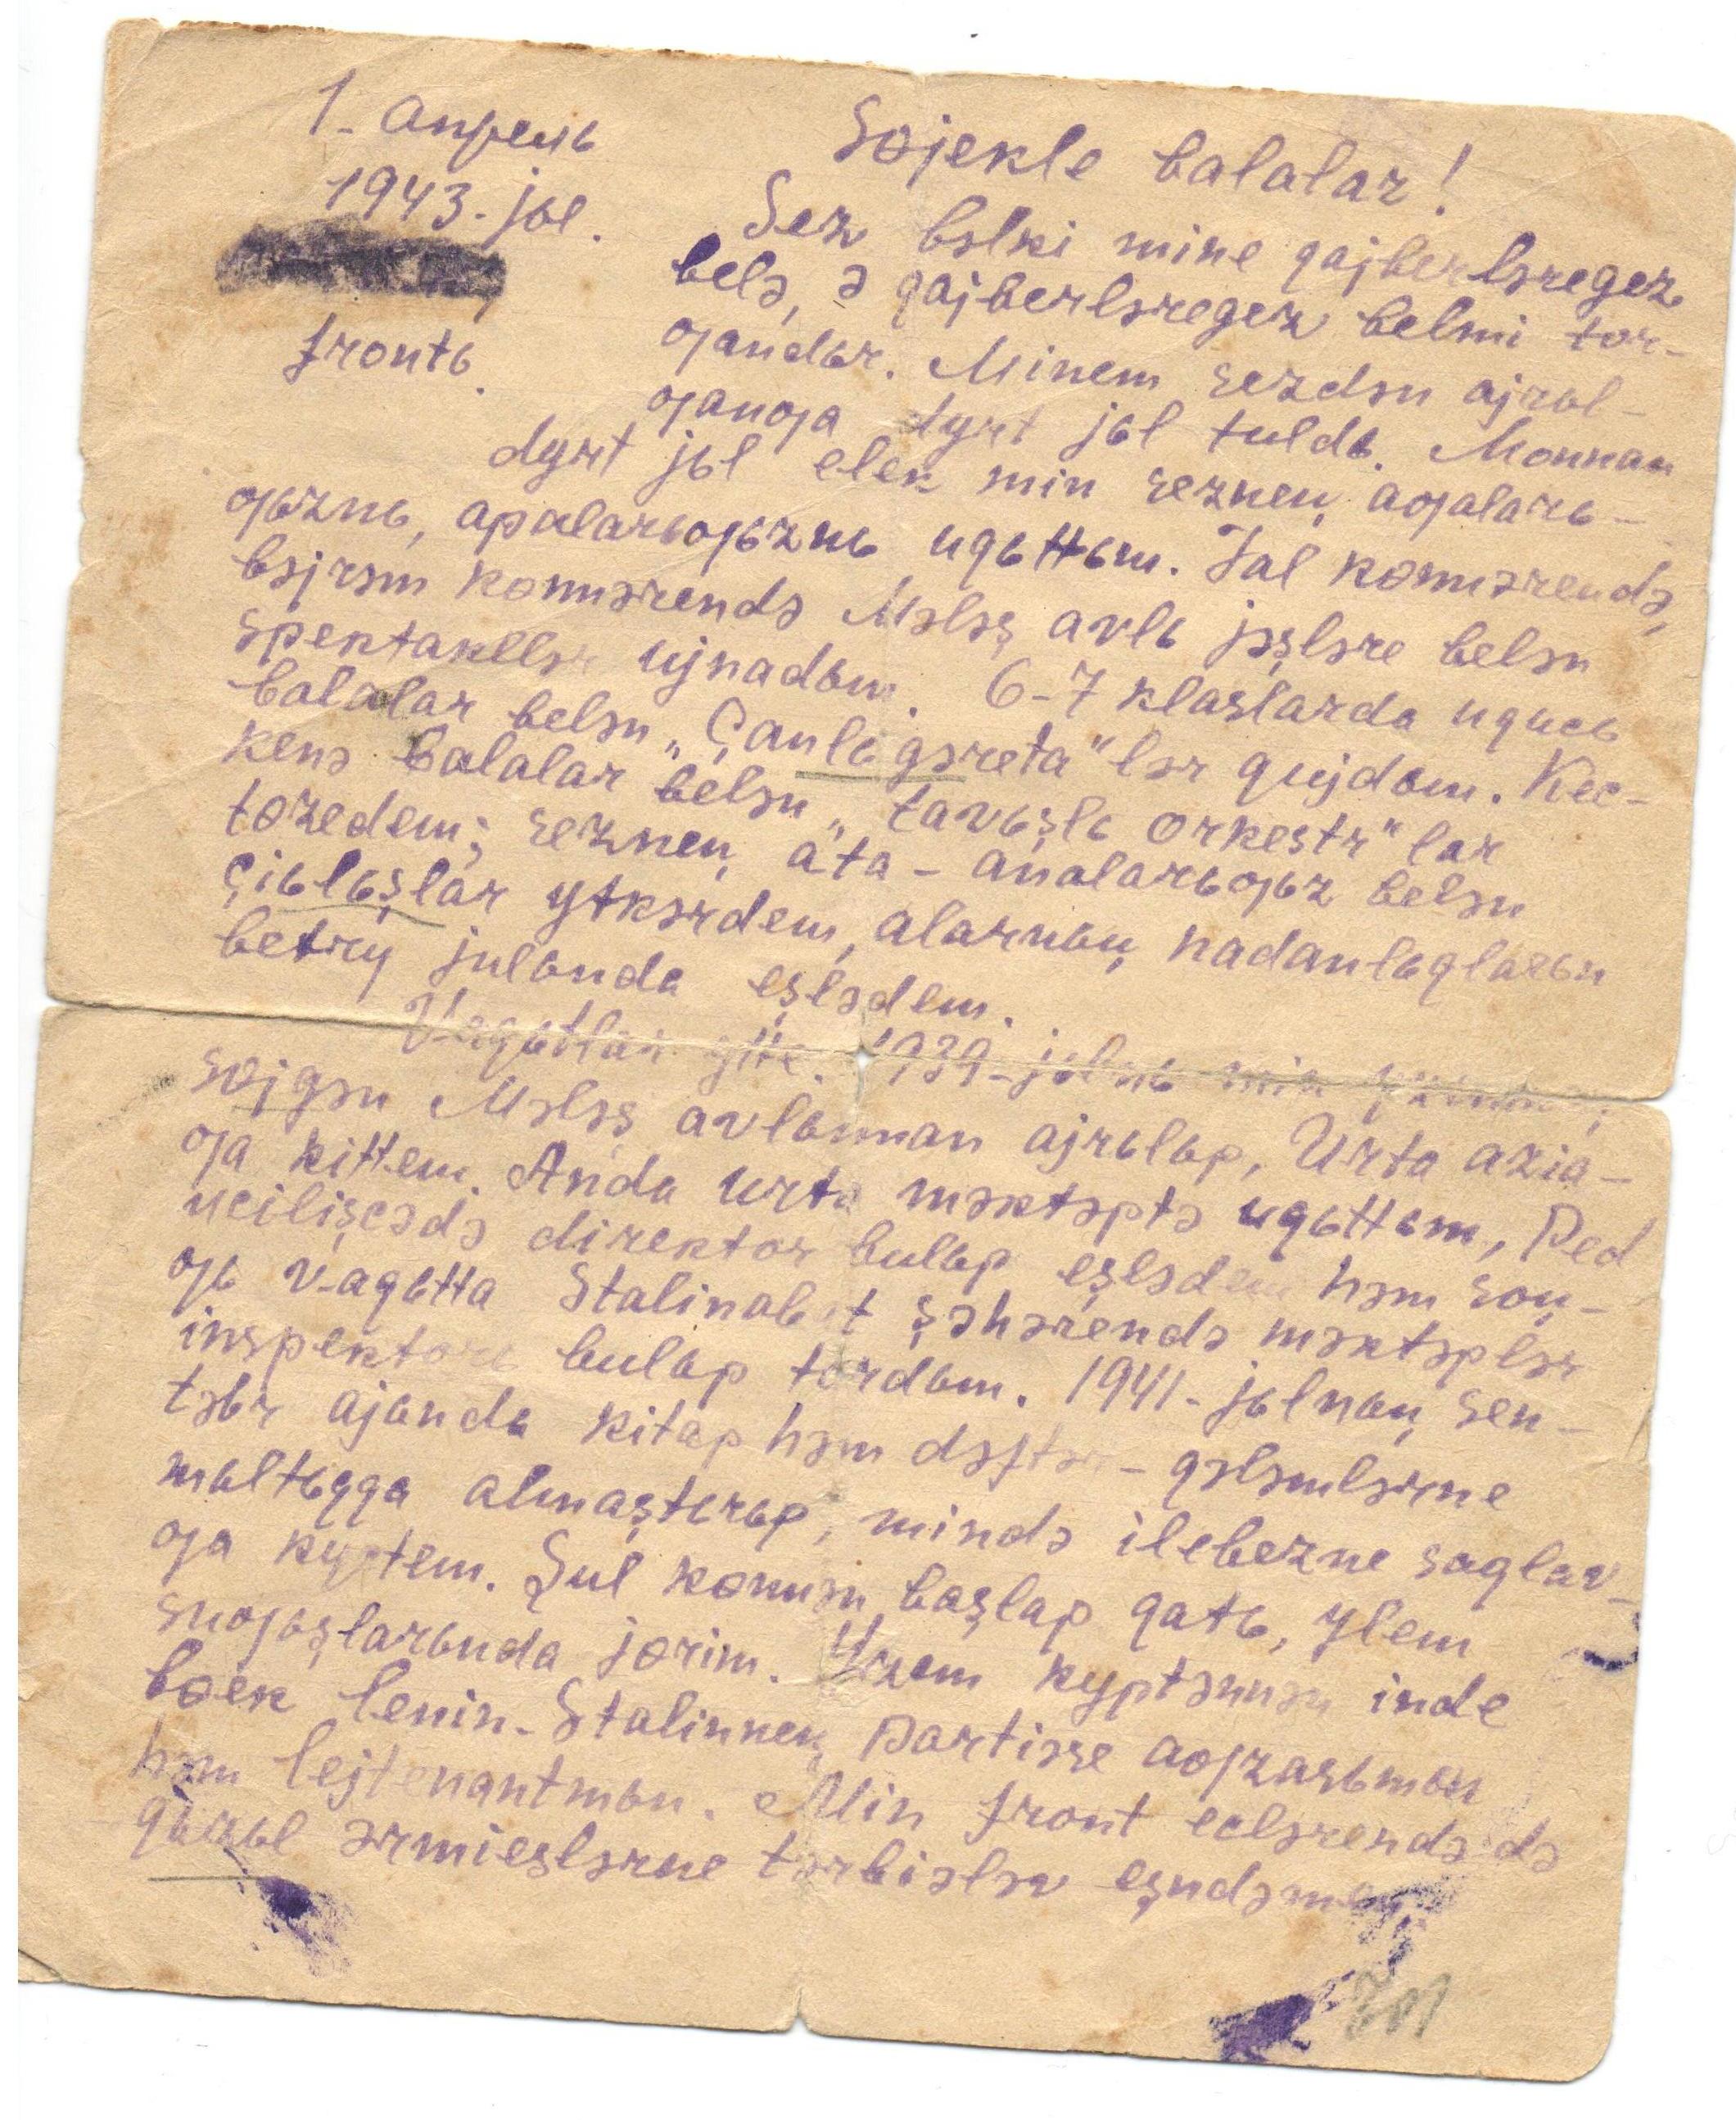 1. Апрель
1943. jьl.
frontь.
Sɵjekle balalar!
Sez bəlki mine qajberləregez
belə, ə qajberləregez belmi tor-
ƣandьr. Minem sezdən ajrьl-
ƣanƣa dyrt jьl tuldь. Monnan
dyrt jьl elek min seznen̡ aƣalarь-
ƣьznь, apalarьƣьznь uqьttьm. Jal kɵnnərendə,
bəjrəm kɵnnərendə Mələş avlь jəşləre belən
spektakllər ujnadьm. 6-7 klaslarda uqucь
balalar belən „Çanlь gəzeta“lər qujdьm. Kec-
kenə balalar belən „tavьşlь orkestr“lar
tɵzedem; seznen̡ ata-analarьƣьz belən
çiьlьşlar ytkərdem, alarnьn̡ nadanlьqlarьn
betery julьnda eşlədem.
Vaqьtlar ytte. 1939-jьlnь min
sɵjgən Mələş avlьnnan ajrьlьp, Urta azia-
ƣa kittem. Anda urta məktəptə uqьttьm, Ped
uciliscedə direktor bulьp eşlədem həm son̡-
ƣь vaqьtta Stalinabat şəhərendə məktəplər
inspektorь bulьp tordьm. 1941-jьlnьn̡ sen-
təbr ajьnda kitap həm dəftər-qələmlərne
mьltьqqa almaştьrьp, mində ilebezne saqlav-
ƣa kyctem. Şul kɵnnən başlap qatь, ylem
suƣьşlarьnda jɵrim. Yzem kyptənnən inde
bɵek Lenin-Stalinnen̡ partiəse aƣzasьmьn
həm lejtenantmьn. Min front eclərendə də
qьzьl ərmieşlərne tərbiələv eşndəmen.